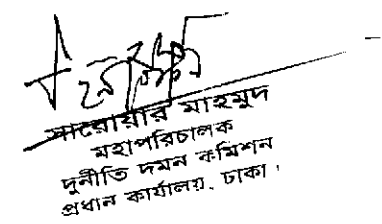 সারোয়ার মাহমুদ
মহাপরিচালক
দুর্নীতি দমন কমিশন
প্রধান কার্যালয়, ঢাকা।